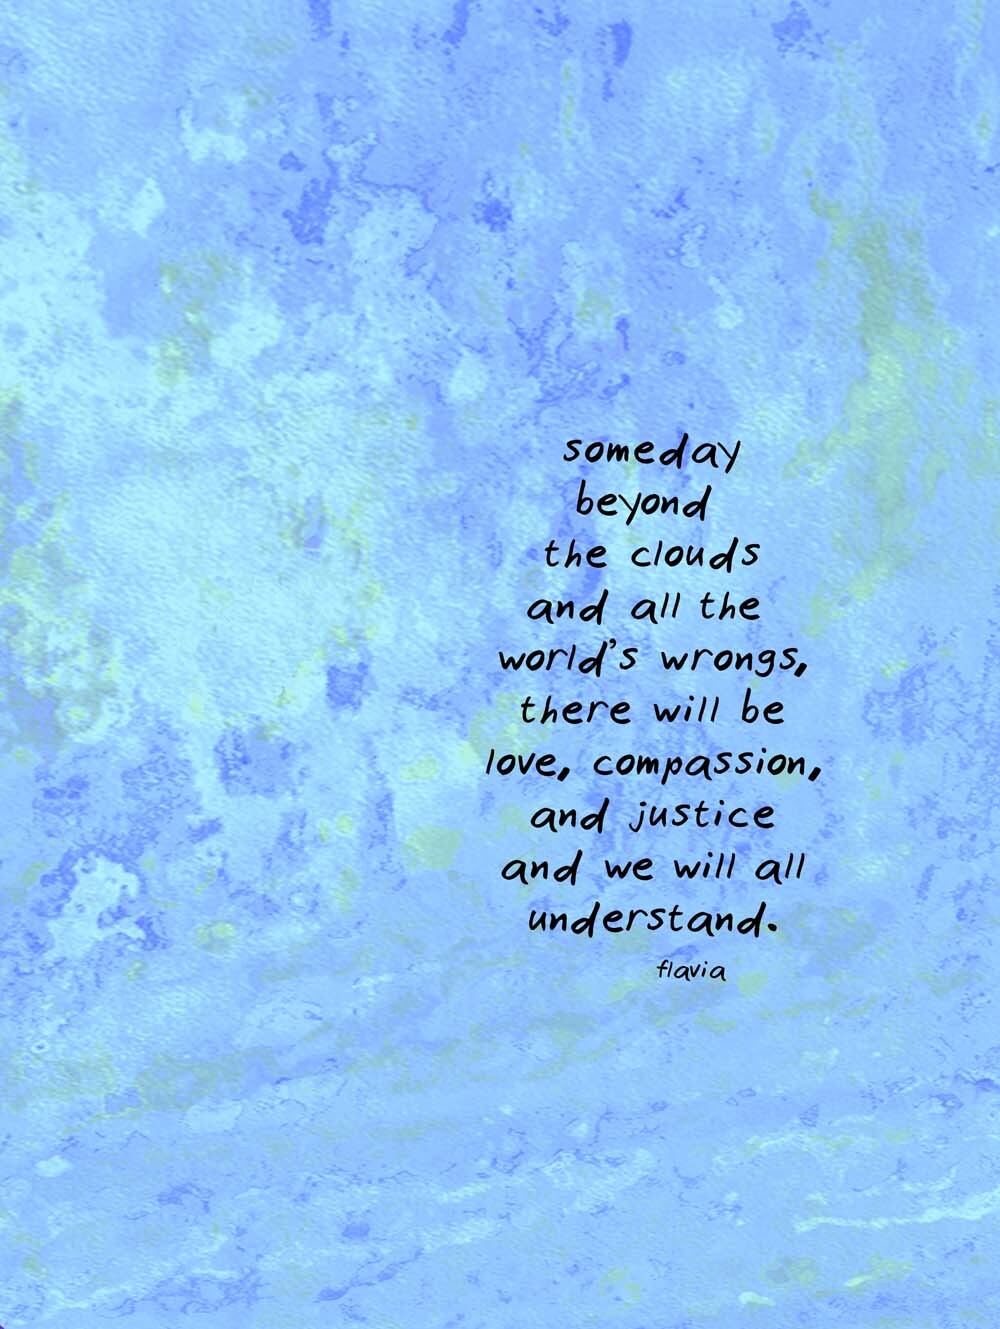 someday
beyond
the clouds
and all the
world's wrongs,
there will be
love, compassion,
and justice
and we will all
understand.
flavia